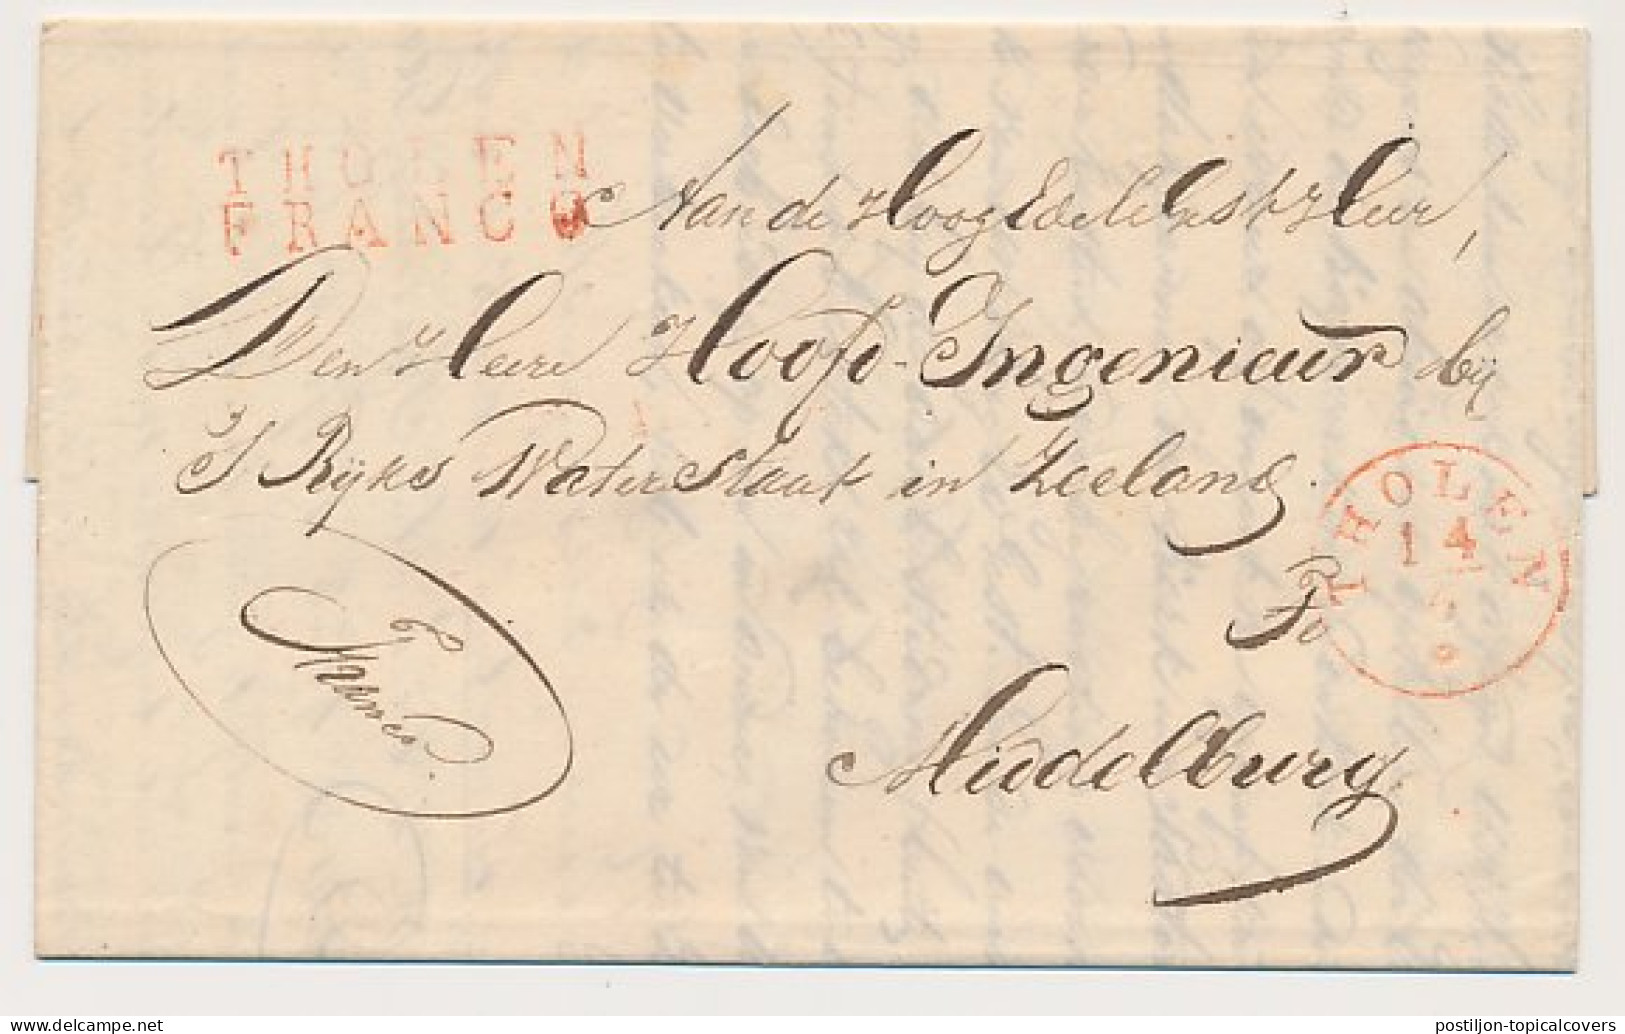 THOLEN
FRANCO
Aan de Hoog Edele Gestr Heer,
Den Heere Hoofd-Ingenieur bij
'S Rijks Waterstaat in Zeeland.
THOLEN
14
To
Franco.
Middelburg
postiljon-topicalcovers